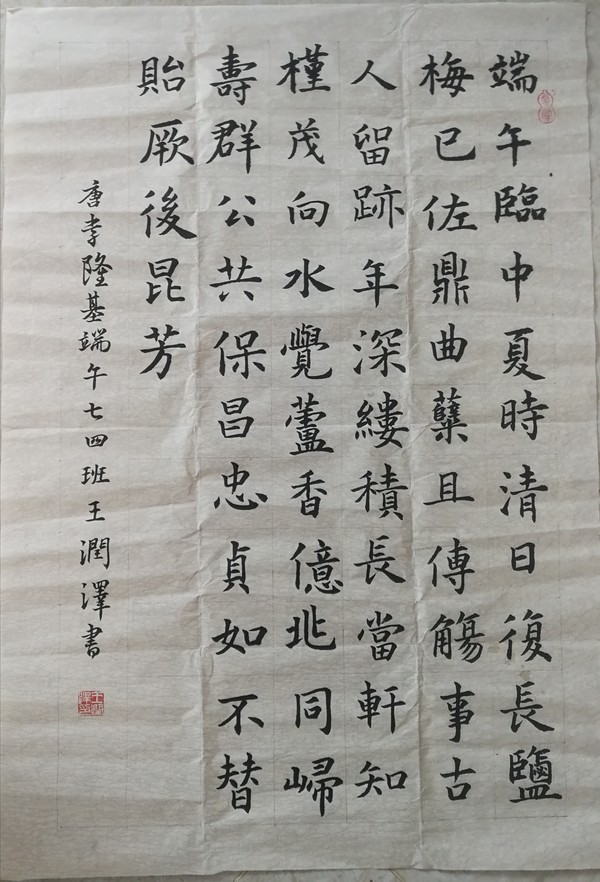 端午臨中夏時清日復長鹽
梅已佐鼎曲蘗且傳觴事古
人留跡年深縷積長當軒知
槿茂向水覺蘆香億兆同歸
壽群公共保昌忠貞如不替
貽厥後昆芳
唐李隆基端午七四班王潤澤書